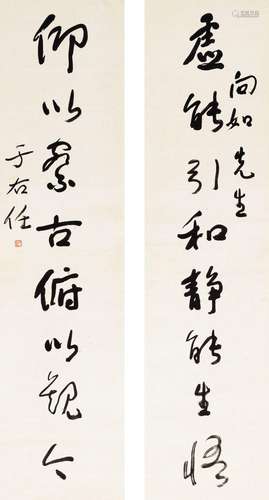 向如先生
虛能引和静能生悟
仰以察古俯以觀今
于右任